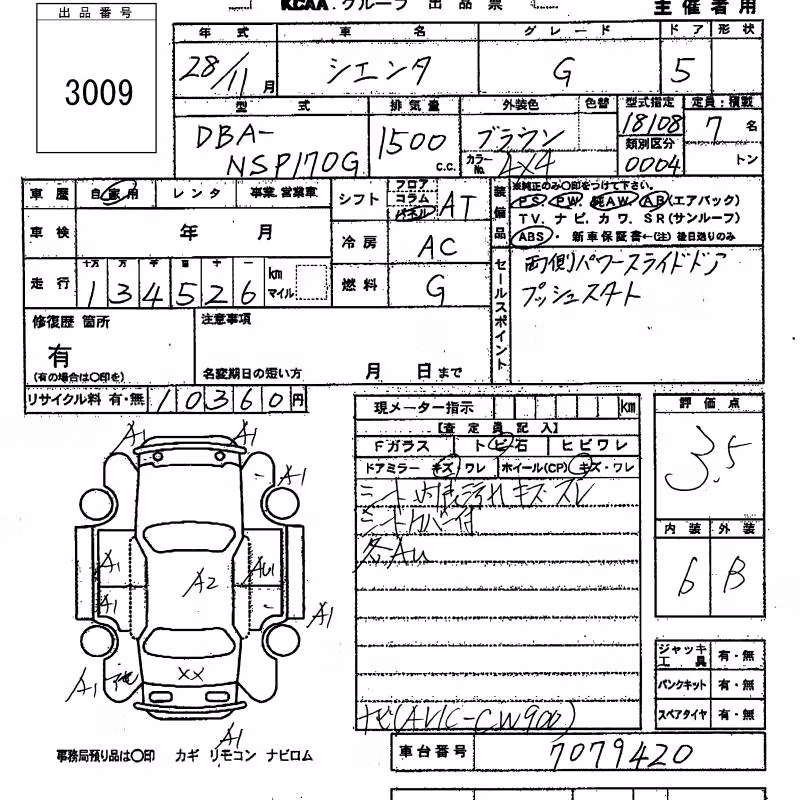 KCAA グループ 出品票
主催者用
出品番号
3009
年式 車名 グレード ドア 形状
28/11月 シエンタ G 5
型式 排気量 外装色 色替 型式指定 定員:積載
DBA-NSP170G 1500 c.c. ブラウン 18108 7名
カラーNo. 4X4 類別区分 0004 トン
車歴 自家用 レンタ 事業.営業車
車検 年 月
走行 十万 万 千 百 十 一
134526 km マイル
シフト フロア コラム パネル AT
冷房 AC
燃料 G
装備品
※純正のみ〇印をつけて下さい。
PS. PW. 純AW. AB(エアバック)
TV. ナビ. カワ. SR(サンルーフ)
ABS・ 新車保証書←(注) 後日送りのみ
セールスポイント
両側パワースライドドア
プッシュスタート
修復歴 箇所
有
(有の場合は〇印を)
注意事項
名変期日の短い方 月 日まで
リサイクル料 有・無 10360円
現メーター指示 km
【査定員記入】
Fガラス トビ石 ヒビワレ
ドアミラー キズ・ワレ ホイール(CP) キズ・ワレ
シート 内張 汚れ キズ・スレ
シートカバー付
各AU
ナビ(AVIC-CW900)
評価点
3.5
内装 外装
6 B
ジャッキ工具 有・無
パンクキット 有・無
スペアタイヤ 有・無
A1 A1
A1
A1 A2 AU1
A1
A1
A1
XX
A1
事務局預り品は〇印 カギ リモコン ナビロム
車台番号 7079420